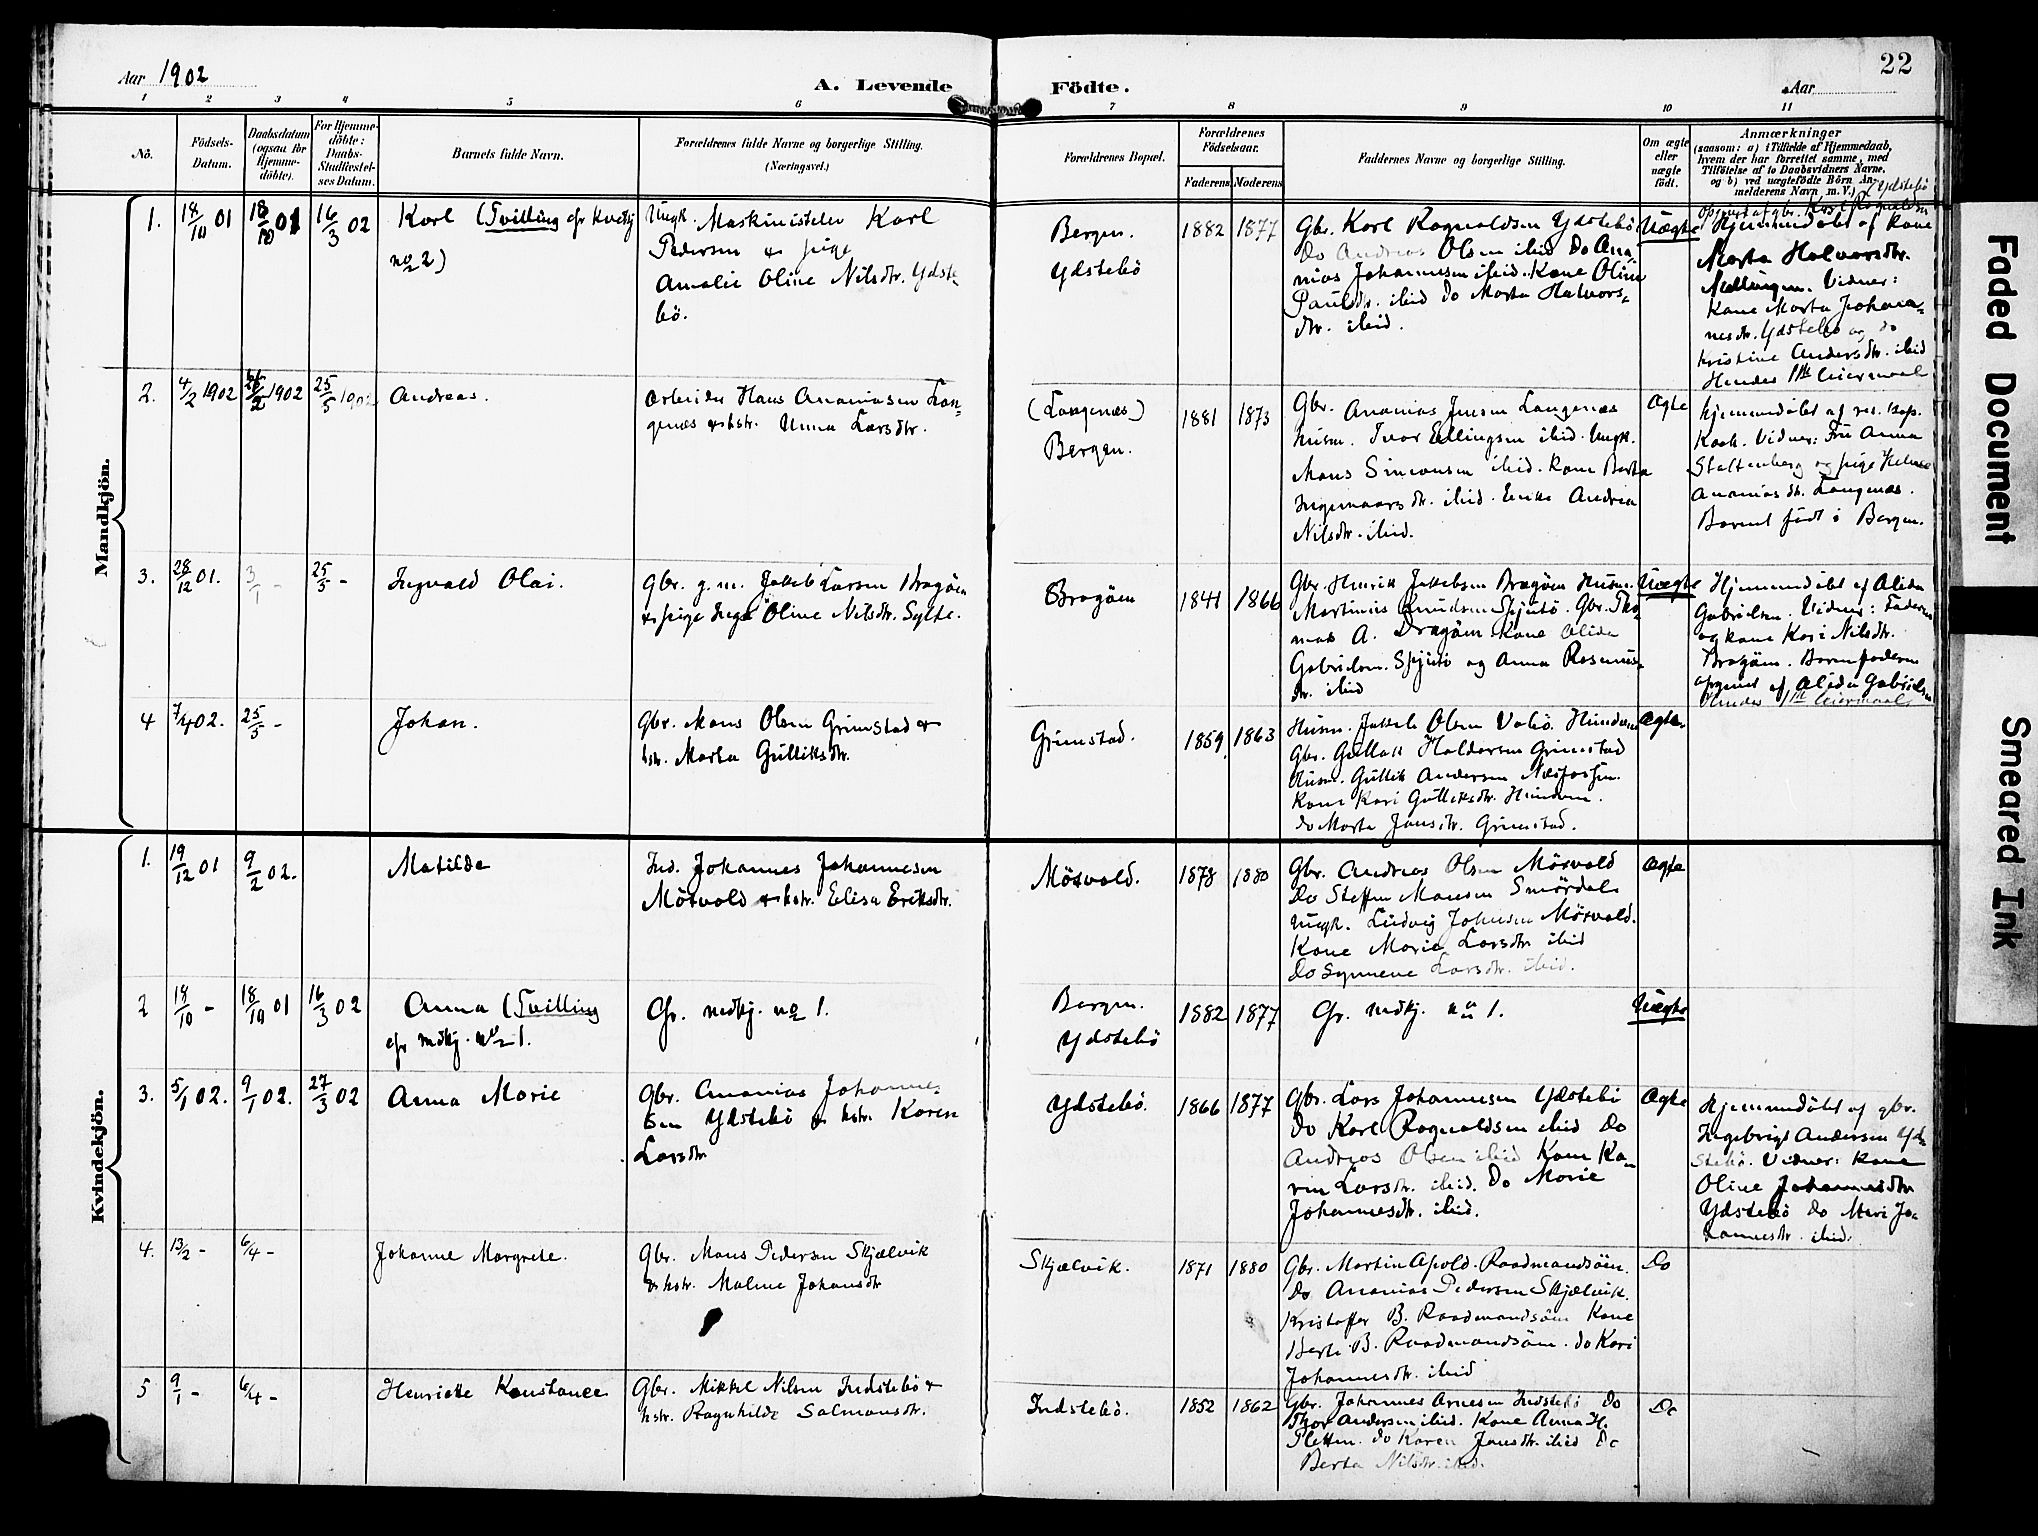 Aar 1902
A. Levende Födte.
22
Aar
1 2 3 4 5 6 7 8 9 10 11
No.
Födsels-
Datum.
Daabsdatum
(ogsaa for
Hjemme-
döbte).
For Hjemme-
döbte:
Daabs-
Stadfæstel-
ses Datum.
Barnets fulde Navn.
Forældrenes fulde Navne og borgerlige Stilling.
(Næringsvei.)
Forældrenes Bopæl.
Forældrenes
Födselsaar.
Faderens
Moderens
Faddernes Navne og borgerlige Stilling.
Om ægte
eller
uægte
födt.
Anmærkninger
(saasom: a) i Tilfælde af Hjemmedaab,
hvem der har forrettet samme, med
Tilföielse af to Daabsvidners Navne,
og b) ved uægtefödte Börn An-
melderens Navn m. V.)
Mandkjön.
1. 18/10 01 18/10 01 16/3 02
Karl (Tvilling cfr kvdkj
no 2)
Ungk. Maskinistelev Karl
Pedersen & pige
Amalie Oline Nilsdtr. Ydste-
bö.
Bergen.
Ydstebö
1882 1877
Gbr. Karl Ragnaldsen Ydstebö
Do Andreas Olsen ibid Do Ana-
nias Johannesen ibid. Kone Oline
Paulsdtr. ibid Do Marta Halvors-
dtr. ibid.
Uægte
Opgivet af gbr. Karl Ragnaldsen Ydstebö
Hjemmedöbt af kone
Marta Halvorsdtr.
Vidner:
Kone Marta Johan-
nesdtr. Ydstebö og do
Kristine Andersdtr. ibid
Hendes 1ste leiermaal
2. 4/2 1902 /2 1902 25/5 1902
Andreas.
Arbeider Hans Ananiasen Lan-
genæs & hstr. Anna Larsdtr.
(Langenæs)
Bergen.
1881 1873
Gbr. Ananias Jensen Langenæs
Husm. Ivar Ellingsen ibid. Ungk.
Mons Simonsen ibid. Kone Berta
Ingemaarsdtr. ibid. Enke Andrea
Nilsdtr. ibid.
Ægte
Hjemmedöbt af res. kap.
Koch. Vidner: Fru Anna
Stoltenberg og pige Helene
Ananiasdtr. Langenæs.
Barnet födt i Bergen.
3. 28/12 01. 3/1 - 25/5 -
Ingvald Olai.
Gbr. g.m. Jakob Larsen Dragöen
& pige Inga Oline Nilsdtr. Sylte.
Dragöen
1841 1866
Gbr. Henrik Jakobsen Dragöen Husm.
Martinus Knudsen Spjutö. Gbr. Tho-
mas A. Dragöen Kone Alida
Gabrielsen. Spjutö og Anna Rasmus-
dtr. ibid
Uægte
Hjemmedöbt af Alida
Gabrielsen. Vidner: Faderen
og kone Kari Nilsdtr.
Dragöen. Barnefaderen
opgivet af Alida Gabrielsen
Hendes 1ste leiermaal
4 7/4 02. 25/5 -
Johan.
Gbr. Mons Olsen Grimstad &
hstr. Marta Gulliksdtr.
Grimstad.
1859 1863
Husm. Jakob Olsen Valö. Hundven
Gbr. Gullak Haldorsen Grimstad
Husm. Gullik Andersen Næsfossen.
Kone Kari Gulliksdtr. Hundven.
Do Marta Jansdtr. Grimstad.
Ægte
Kvindekjön.
1. 19/12 01 9/2 02.
Matilde
Ind. Johannes Johannesen
Mösvold & hstr. Elisa Eriksdtr.
Mösvold.
1878 1880
Gbr. Andreas Olsen Mösvold
Do Steffen Monsen Smördal
Ungk. Ludvig Johnsen Mösvold.
Kone Marie Larsdtr ibid
Do Synneve Larsdtr. ibid.
Ægte
2 18/10 - 18/10 01 16/3 02
Anna (Tvilling
cfr mdkj. no 1.
Cfr. mdkj. no 1.
Bergen.
Ydstebö
1882 1877
Cfr. mdkj. no 1.
Uægte
3. 5/1 02. 9/1 02. 27/3 02
Anna Marie
Gbr. Ananias Johanne-
sen Ydstebö & hstr. Karen
Larsdtr
Ydstebö.
1866 1877
Gbr. Lars Johannesen Ydstebö
Do Karl Ragnaldsen ibid Do
Andreas Olsen ibid Kone Ka-
ren Larsdtr. ibid. Do Marie
Johannesdtr. ibid.
Ægte
Hjemmedöbt af gbr.
Ingebrigt Andersen Yd-
stebö. Vidner: Kone
Oline Johannesdtr
Ydstebö Do Mari Jo-
hannesdtr. ibid.
4. 13/2 - 6/4 -
Johanne Margrete.
Gbr. Mons Pedersen Skjælvik
& hstr. Malene Johansdtr
Skjælvik.
1871 1880
Gbr. Martin Apold. Raadmandsöen.
Do Ananias Pedersen Skjælvik.
Kristoffer B. Raadmandsöen Kone
Berte B. Raadmandsöen. Do Kari
Johannesdtr. ibid
Do
5 9/1 - 6/4 -
Henriette Konstance
Gbr. Mikkel Nilsen Indstebö &
hstr. Ragnhilde Salmonsdtr.
Indstebö.
1852 1862
Gbr. Johannes Arnesen Indstebö Do
Thor Andersen ibid. Kone Anna H.
Pletten. Do Karen Jansdtr. ibid Do
Berta Nilsdtr. ibid.
Do
Faded Document
Smeared Ink